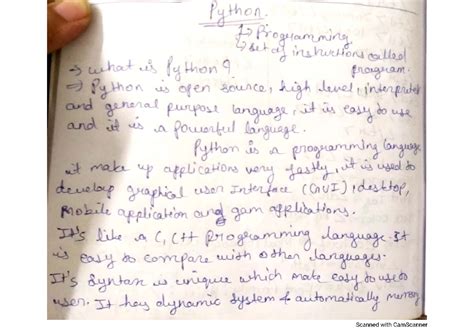 Python.
↳ Programming
↳ set of instructions called program.
→ what is Python?
⇒ Python is open source, high level, interpreted
and general purpose language, it is easy to use
and it is a powerful language.
Python is a programming language
it make up applications very fastly, it is used to
develop graphical user Interface (GUI), desktop,
mobile application and gam applications.
It's like a C, C++ programming language. It
is easy to compare with other languages.
It's Syntax is unique which make easy to use to
user. It has dynamic system & automatically memory
Scanned with CamScanner